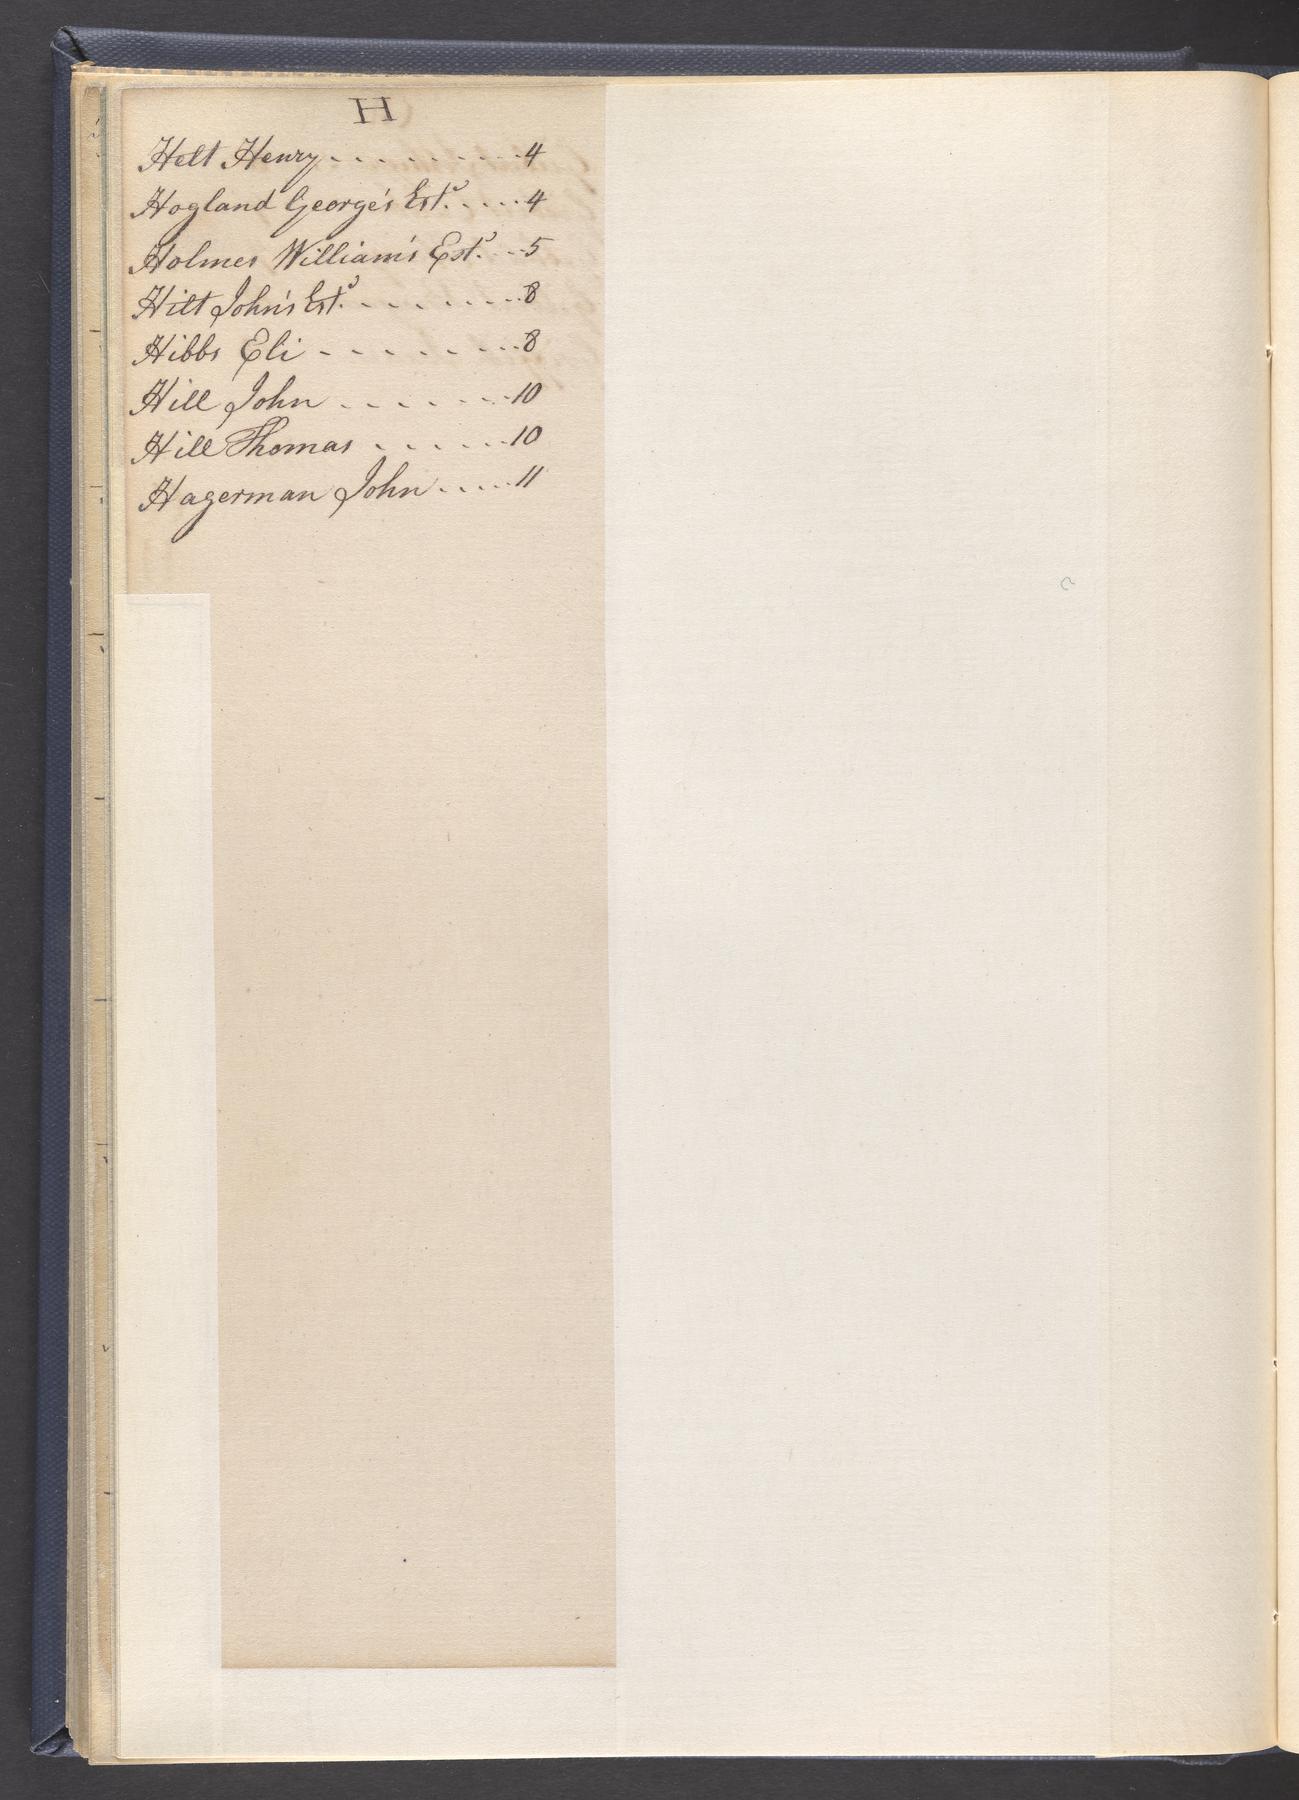 H
Helt Henry . . . . . . . . . 4
Hogland George's Est.e . . . . . 4
Holmes William's Est.e . . 5
Hilt John's Est.e . . . . . . . . . 8
Hibbs Eli . . . . . . . . . 8
Hill John . . . . . . . . 10
Hill Thomas . . . . . . 10
Hagerman John . . . . . 11